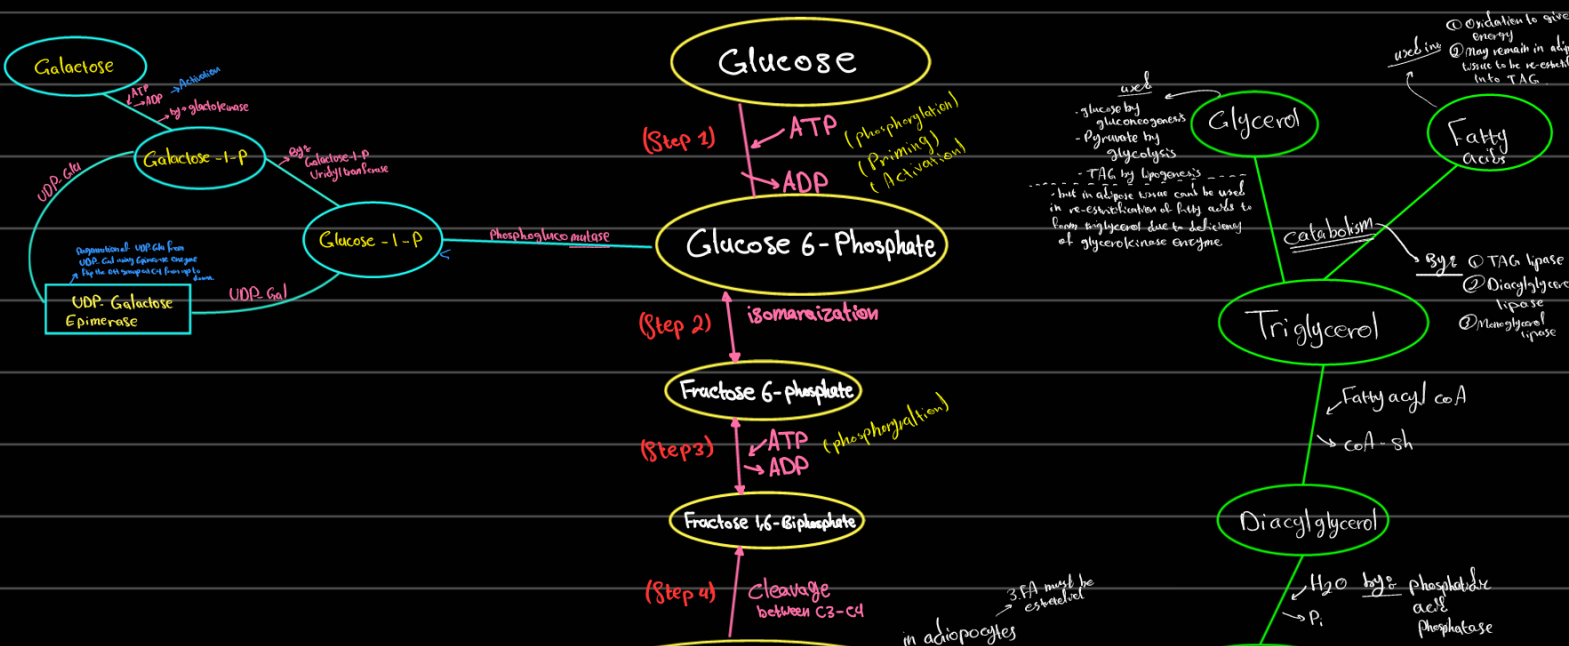 Galactose
ATP
→ADP
→Activation
→by: glactokinase
Galactose-1-P
By:
Galactose-1-P
Uridyltranferase
UDP-Glu
Glucose-1-P
Phosphogluco mutase
UDP-Gal
UDP-Galactose
Epimerase
Glucose
(Step 1)
ATP
ADP
(phosphorylation)
(Priming)
(Activation)
Glucose 6-Phosphate
(Step 2)
isomaraization
Fractose 6-phosphate
(Step3)
ATP
ADP
Fractose 1,6-Biphosphate
(Step 4)
Cleavage
between C3-C4
in adiopocytes
3.FA must be
Glycerol
used
- glucose by
gluconeogenesis
- Pyruvate by
glycolysis
- TAG by lipogenesis
- but in adipose tissue cannot be used
in re-estrification of fatty acids to
form triglycerol due to deficiency
of glycerokinase enzyme
Fatty
acids
used in:
① Oxidation to give
energy
② May remain in adip
tissue to be re-esteri
into TAG
catabolism
By: ① TAG lipase
② Diacylglycero
lipase
③ Monoglycerol
lipase
Triglycerol
Fatty acyl coA
coA-sh
Diacylglycerol
H2O by: phosphatidic
acid
phosphatase
Pi